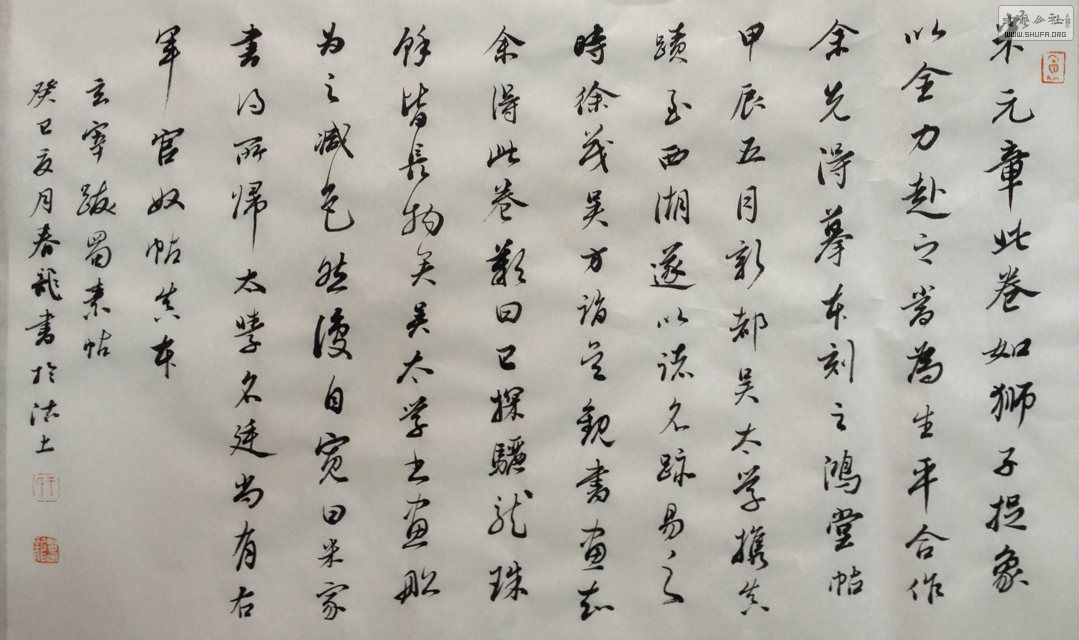 米元章此卷如獅子捉象
以全力赴之當為生平合作
余先得摹本刻之鴻堂帖
甲辰五月新都吳太學攜真
蹟至西湖遂以諸名跡易之
時徐茂吳方詣吳觀書畫知
余得此卷歎曰已探驪龍珠
餘皆長物矣吳太学书画船
为之减色然復自寬曰米家
書得所歸太學名廷尚有右
軍官奴帖真本
玄宰跋蜀素帖
癸巳夏月春龍書於沽上
WWW.SHUFA.ORG